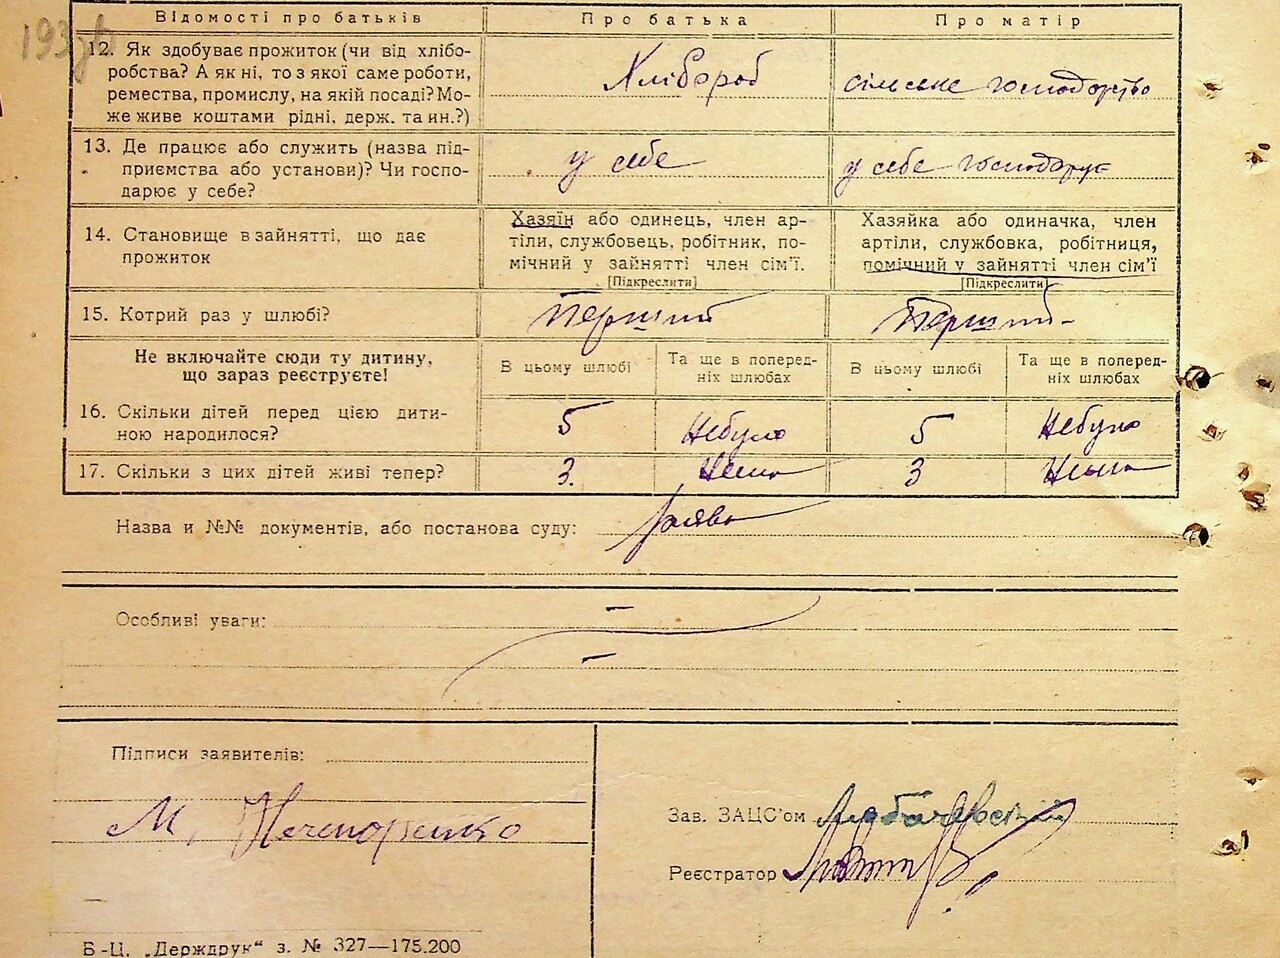 193
Відомості про батьків Про батька Про матір
12. Як здобуває прожиток (чи від хлібо-
робства? А як ні, то з якої саме роботи,
ремества, промислу, на якій посаді? Мо-
же живе коштами рідні, держ. та ин.?)
Хлібороб
сільське господорство
13. Де працює або служить (назва під-
приємства або установи)? Чи госпо-
дарює у себе?
у себе
у себе господорує
14. Становище в зайнятті, що дає
прожиток
Хазяїн або одинець, член ар-
тіли, службовець, робітник, по-
мічний у зайнятті член сім’ї.
[Підкреслити]
Хазяйка або одиначка, член
артіли, службовка, робітниця,
помічний у зайнятті член сім’ї
[Підкреслити]
15. Котрий раз у шлюбі? Перший Перший
Не включайте сюди ту дитину,
що зараз реєструєте!
В цьому шлюбі
Та ще в поперед-
ніх шлюбах
В цьому шлюбі
Та ще в поперед-
ніх шлюбах
16. Скільки дітей перед цією дити-
ною народилося?
5 Небуло 5 Небуло
17. Скільки з цих дітей живі тепер? 3. Нема 3 Нема
Назва и №№ документів, або постанова суду: Заява
Особливі уваги:
Підписи заявителів:
М. Нечипоренко
Зав. ЗАЦС’ом
Реєстратор
Б-Ц. „Держдрук“ з. № 327—175.200